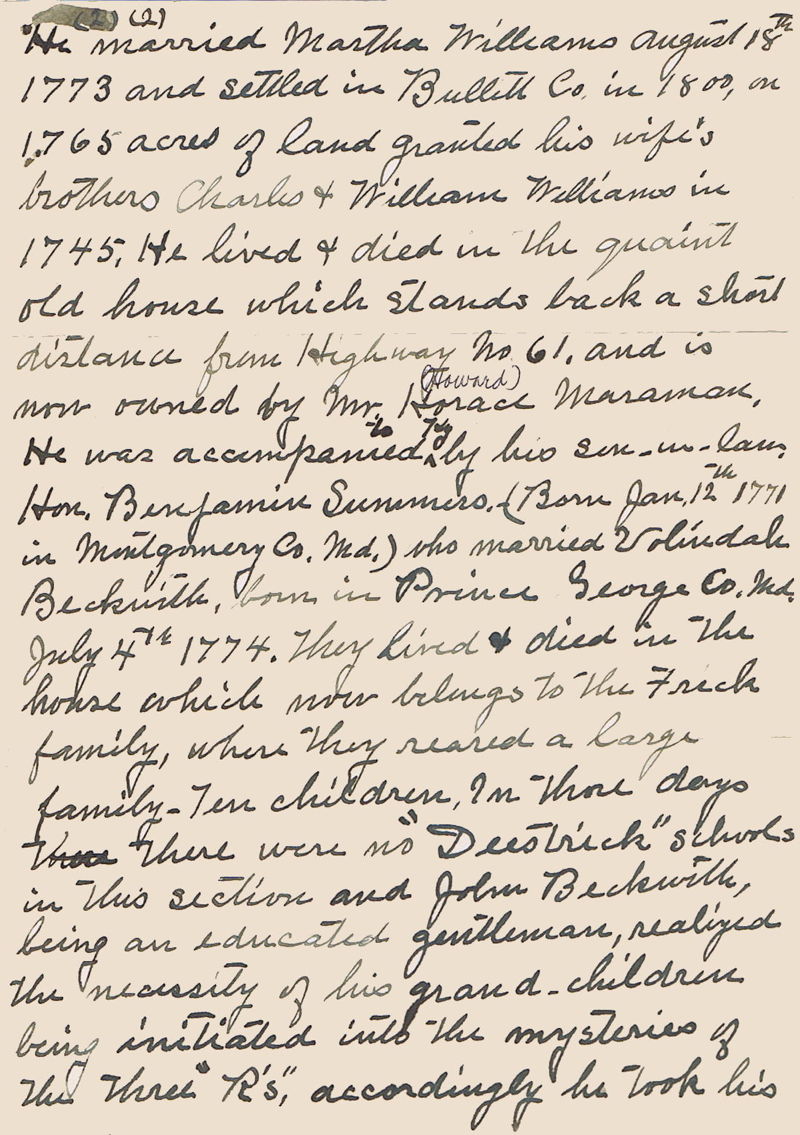 (2) (2)
He married Martha Williams August 18th
1773 and settled in Bullitt Co. in 1800, on
1765 acres of land granted his wife's
brothers Charles & William Williams in
1745. He lived & died in the quaint
old house which stands back a short
distance from Highway No. 61, and is
(Howard)
now owned by Mr. Horace Maraman.
to Ky
He was accompanied by his son-in-law,
Hon. Benjamin Summers. (Born Jan. 12th 1771
in Montgomery Co. Md.) who married Volindah
Beckwith, born in Prince George Co. Md.
July 4th 1774. They lived & died in the
house which now belongs to the Frick
family, where they reared a large
family - Ten children. In those days
there were no "Deestrick" schools
in this section and John Beckwith,
being an educated gentleman, realized
the necessity of his grand-children
being initiated into the mysteries of
the three "R's", accordingly he took his